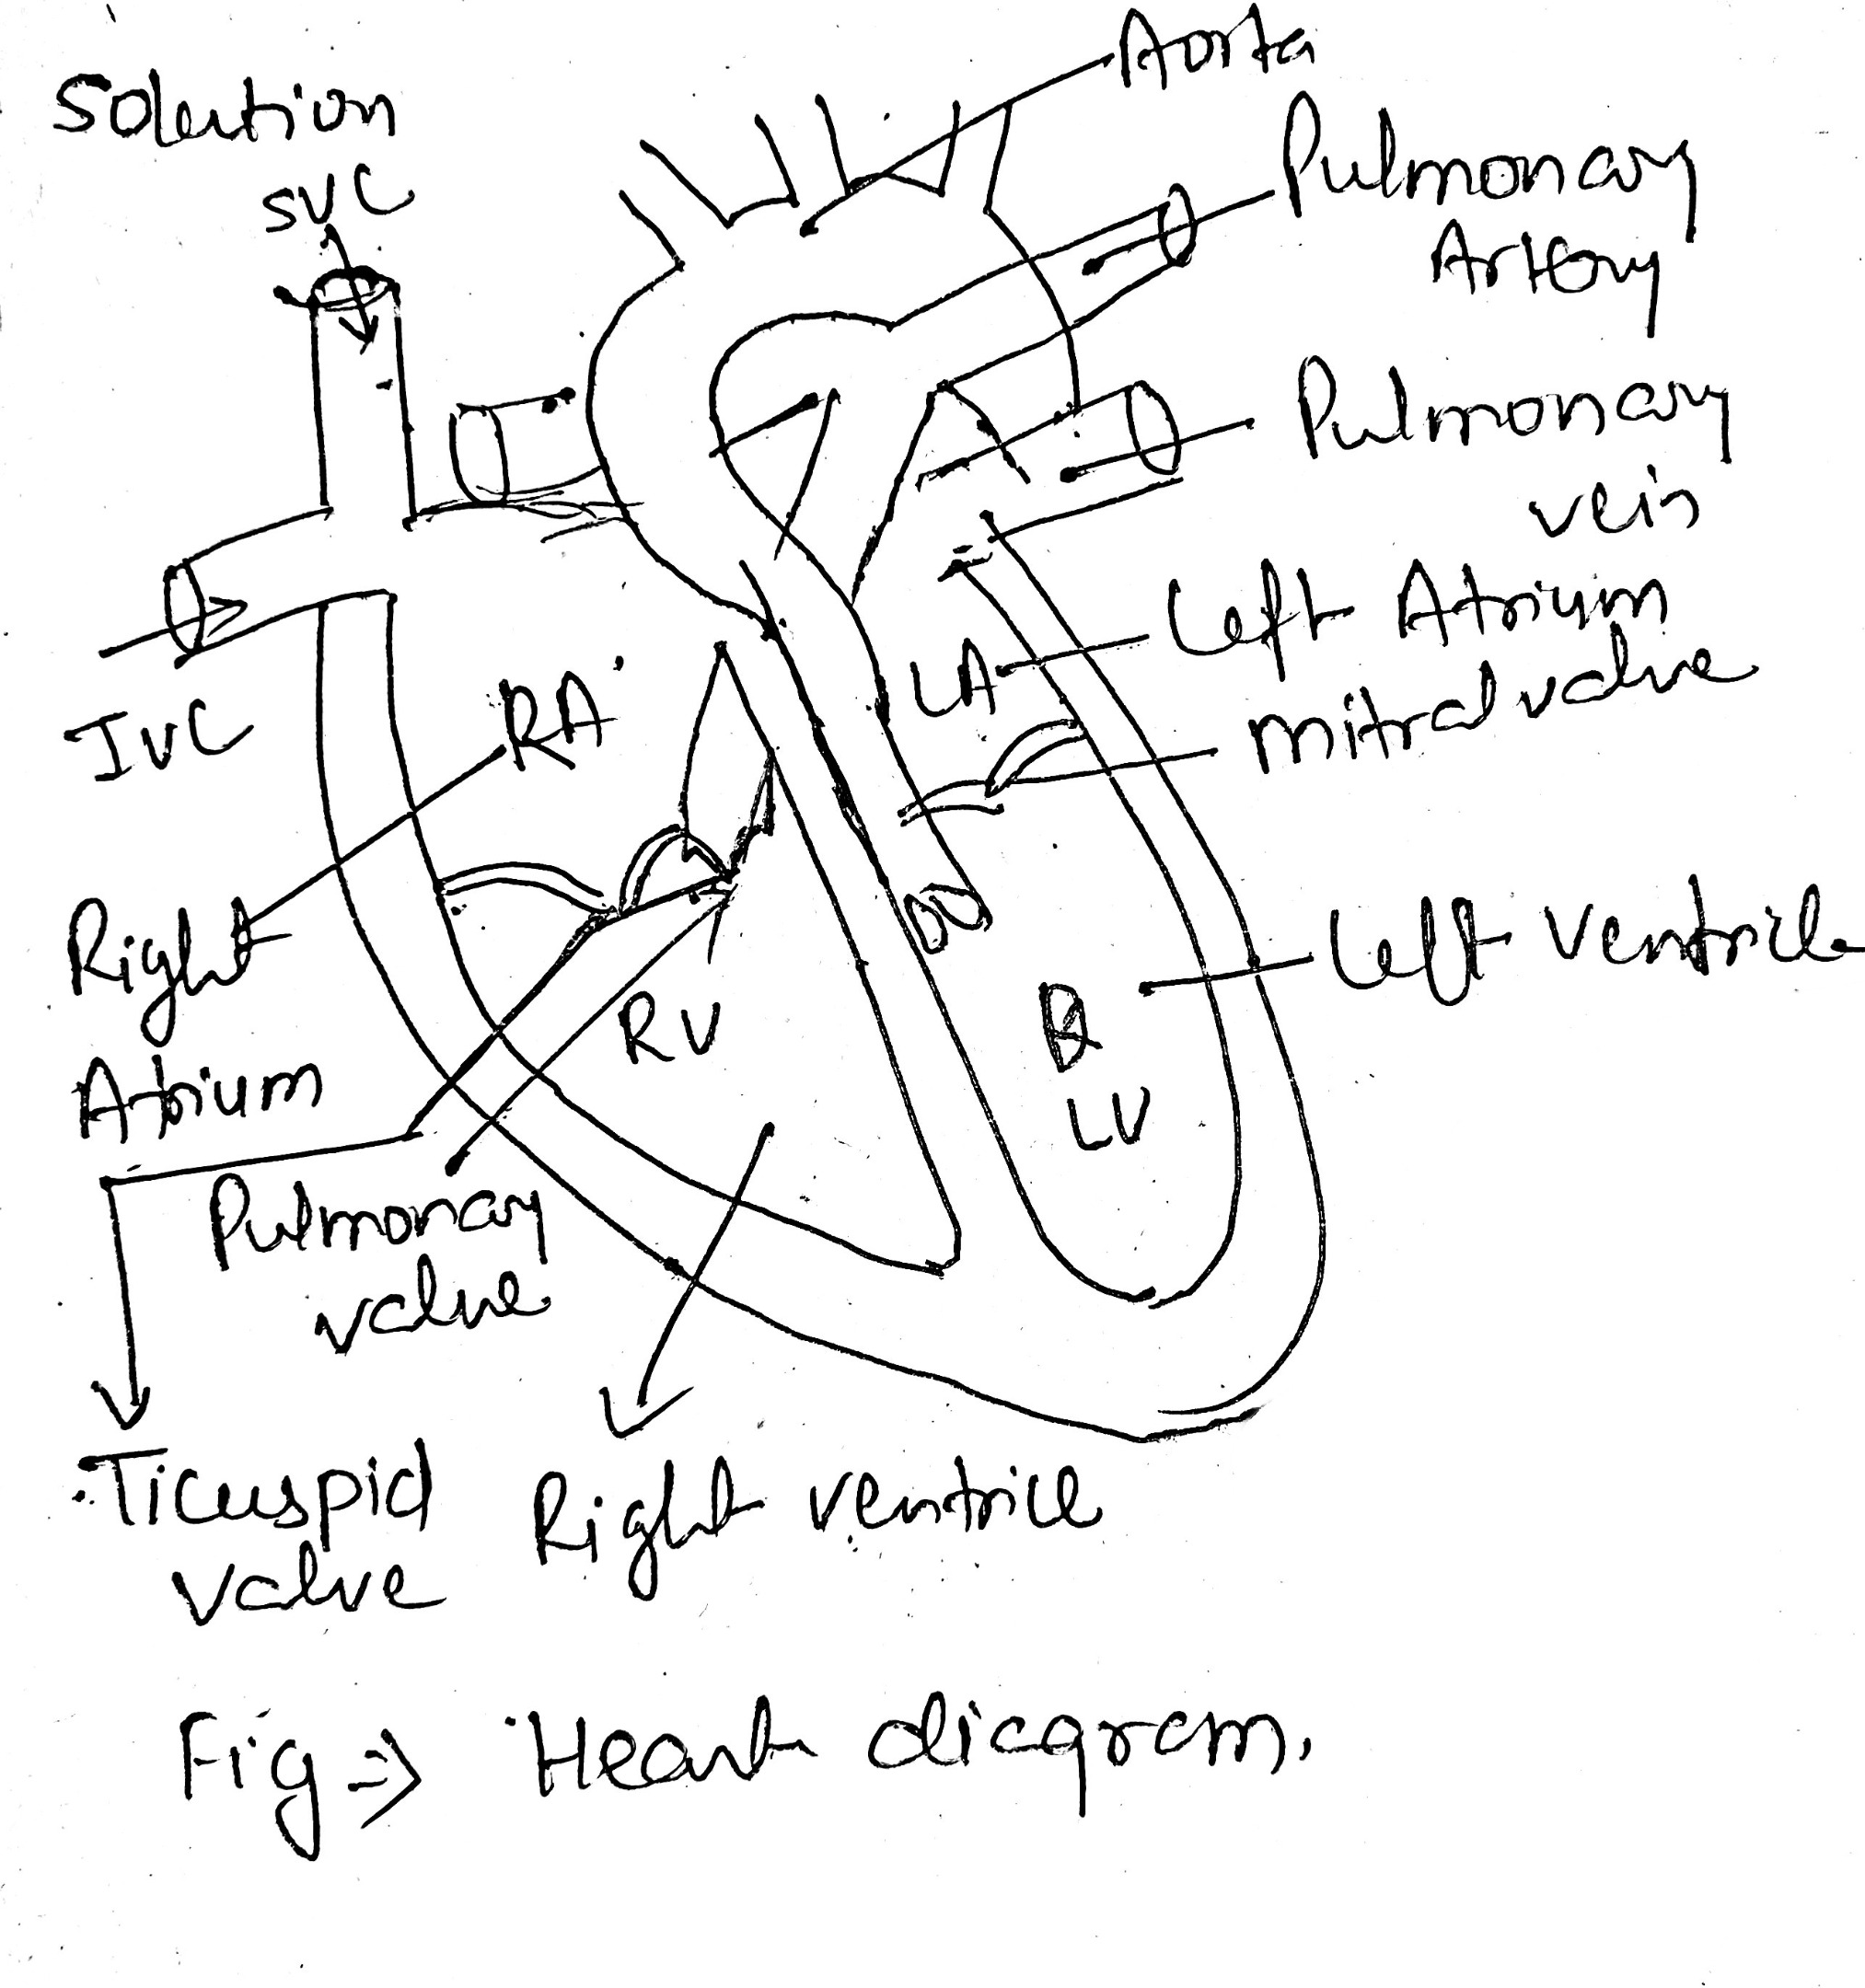 Solution
SVC
Aorta
Pulmonary
Artery
Pulmonary
vein
Left Atrium
LA
mitral valve
IVC
RA
Right
Atrium
Left ventricle
RV
LV
Pulmonary
valve
Ticuspid
valve
Right ventricle
Fig => Heart diagram.